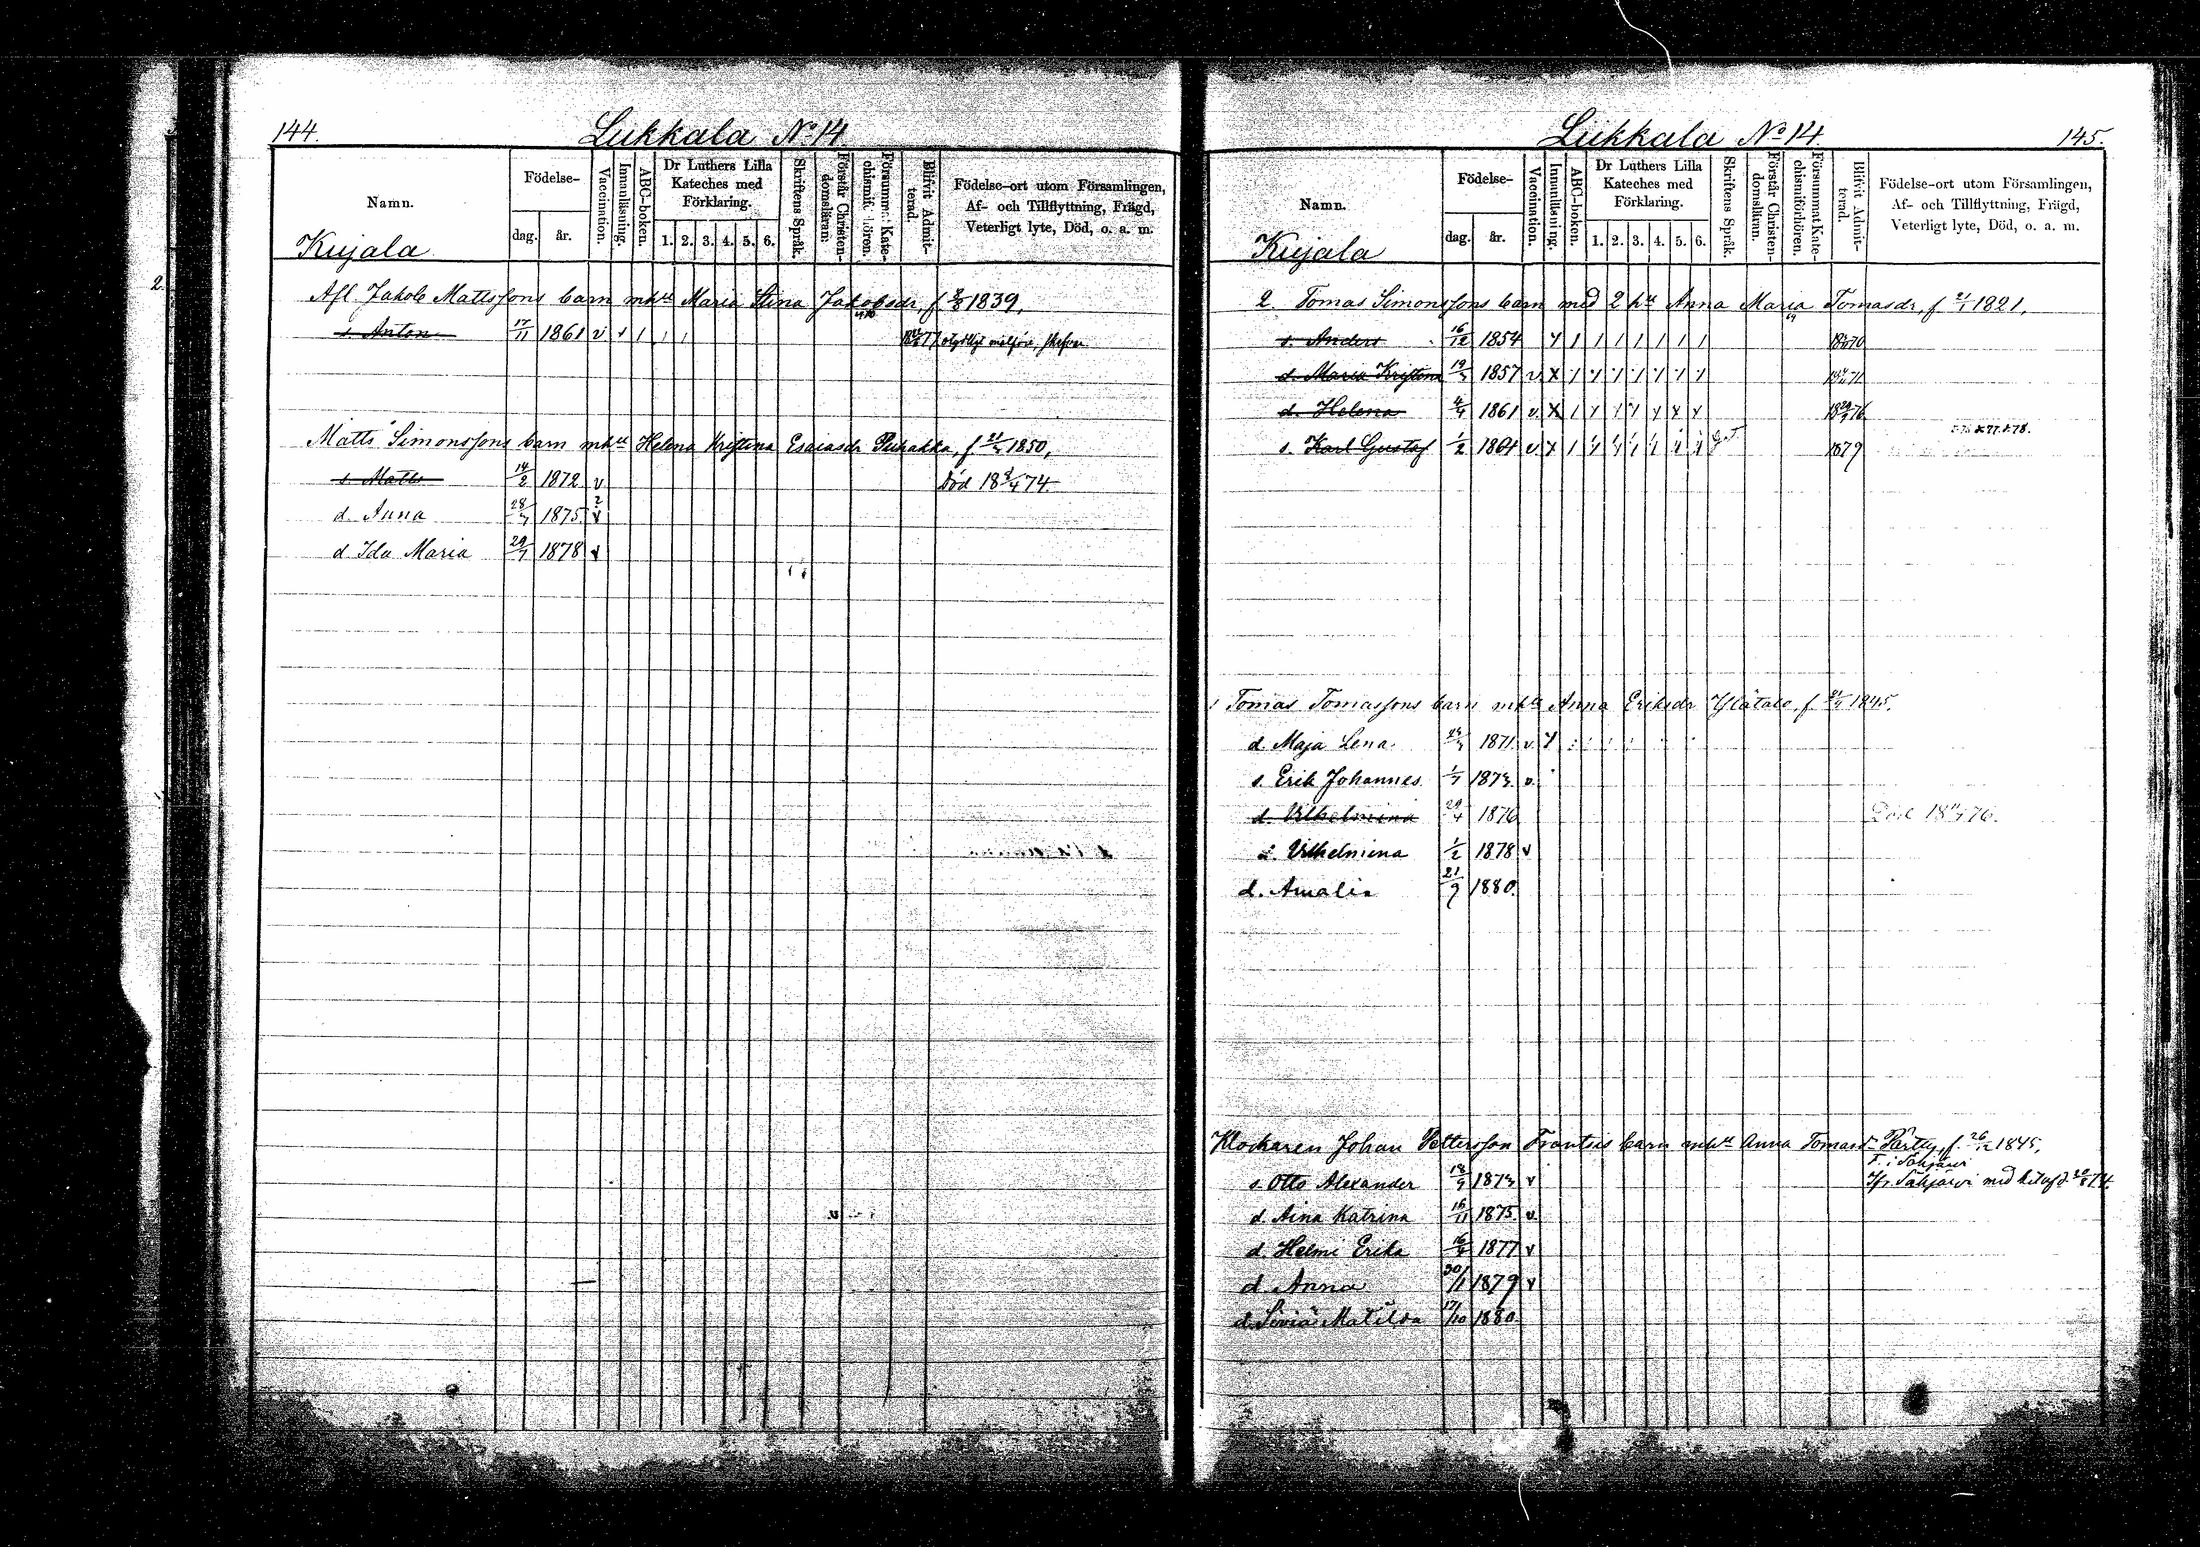 144.
Liikkala No 14.
Namn.
Födelse-
dag.
år.
Vaccination.
Innanläsning.
ABC-boken.
Dr Luthers Lilla
Kateches med
Förklaring.
1. 2. 3. 4. 5. 6.
Skriftens Språk.
Förstår Christen-
domsläran.
Blifvit Admit-
terad.
Födelse-ort utom Församlingen,
Af- och Tillflyttning, Frägd,
Veterligt lyte, Död, o. a. m.
Kujala
2
Afl. Jakob Mattssons barn mhu Maria Stina Jakobsdr, f. 1839,
s. Anton 17/11 1861 v
Matts Simonssons barn mhu Helena Kristina Esaiasdr Puhakka, f. 1850,
s. Matts 14/2 1872 v Död 18 74
d. Anna 1875 2 v
d Ida Maria 29/7 1878 v
Liikkala No 14.
145.
Namn.
Födelse-
dag.
år.
Vaccination.
Innanläsning.
ABC-boken.
Dr Luthers Lilla
Kateches med
Förklaring.
1. 2. 3. 4. 5. 6.
Skriftens Språk.
Förstår Christen-
domsläran.
Försummat Kate-
chismiförhören.
Blifvit Admit-
terad.
Födelse-ort utom Församlingen,
Af- och Tillflyttning, Frägd,
Veterligt lyte, Död, o. a. m.
Kujala
2 Tomas Simonssons barn med 2 hu Anna Maria Tomasdr, f 21/1 1821.
s. Anders 16/12 1854
d. Maria Kristina 1857 v
d. Helena 4/4 1861 v
77. 78.
s. Karl Gustaf 1/2 1864 v 1879
1 Tomas Tomassons barn mhu Anna Eriksdr Ylätalo, f. 1845.
d. Maja Lena 1871 v.
s. Erik Johannes 1/7 1873. v.
d. Vilhelmina 29/4 1876 Död 18 76.
d. Vilhelmina 1/2 1878 v
d. Amalia 21/9 1880.
Klockaren Johan Pettersson Frantsis barn mhu Anna Tomasdr f. 26/12 1845,
s. Otto Alexander 18/9 1873 v
d. Aina Katrina 16/11 1875 v.
d. Helmi Erika 1877 v
d. Anna 30/1 1879 v
d. Matilda 17/10 1880